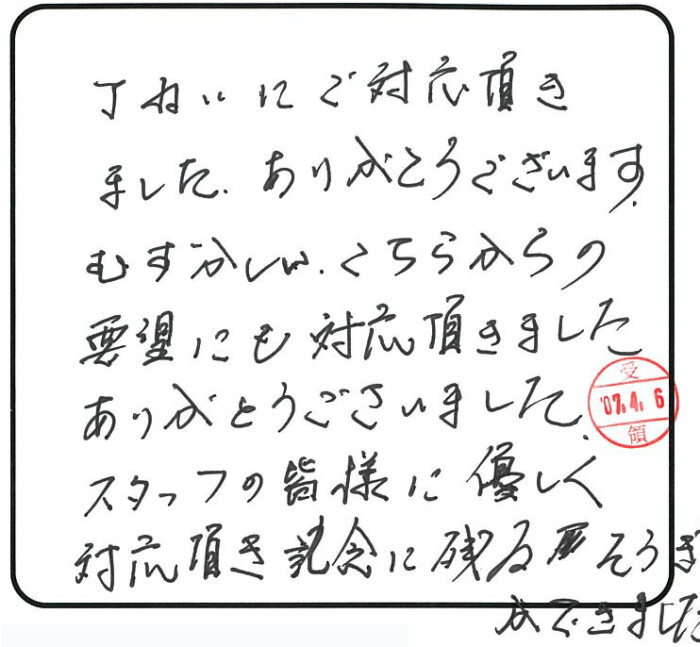 丁ねいにご対応頂き
ました。ありがとうございます。
むすかしい、こちらからの
要望にも対応頂きました
ありがとうございました。
受
'07.4.6
領
スタッフの皆様に優しく
対応頂き記念に残るそうぎ
ができました